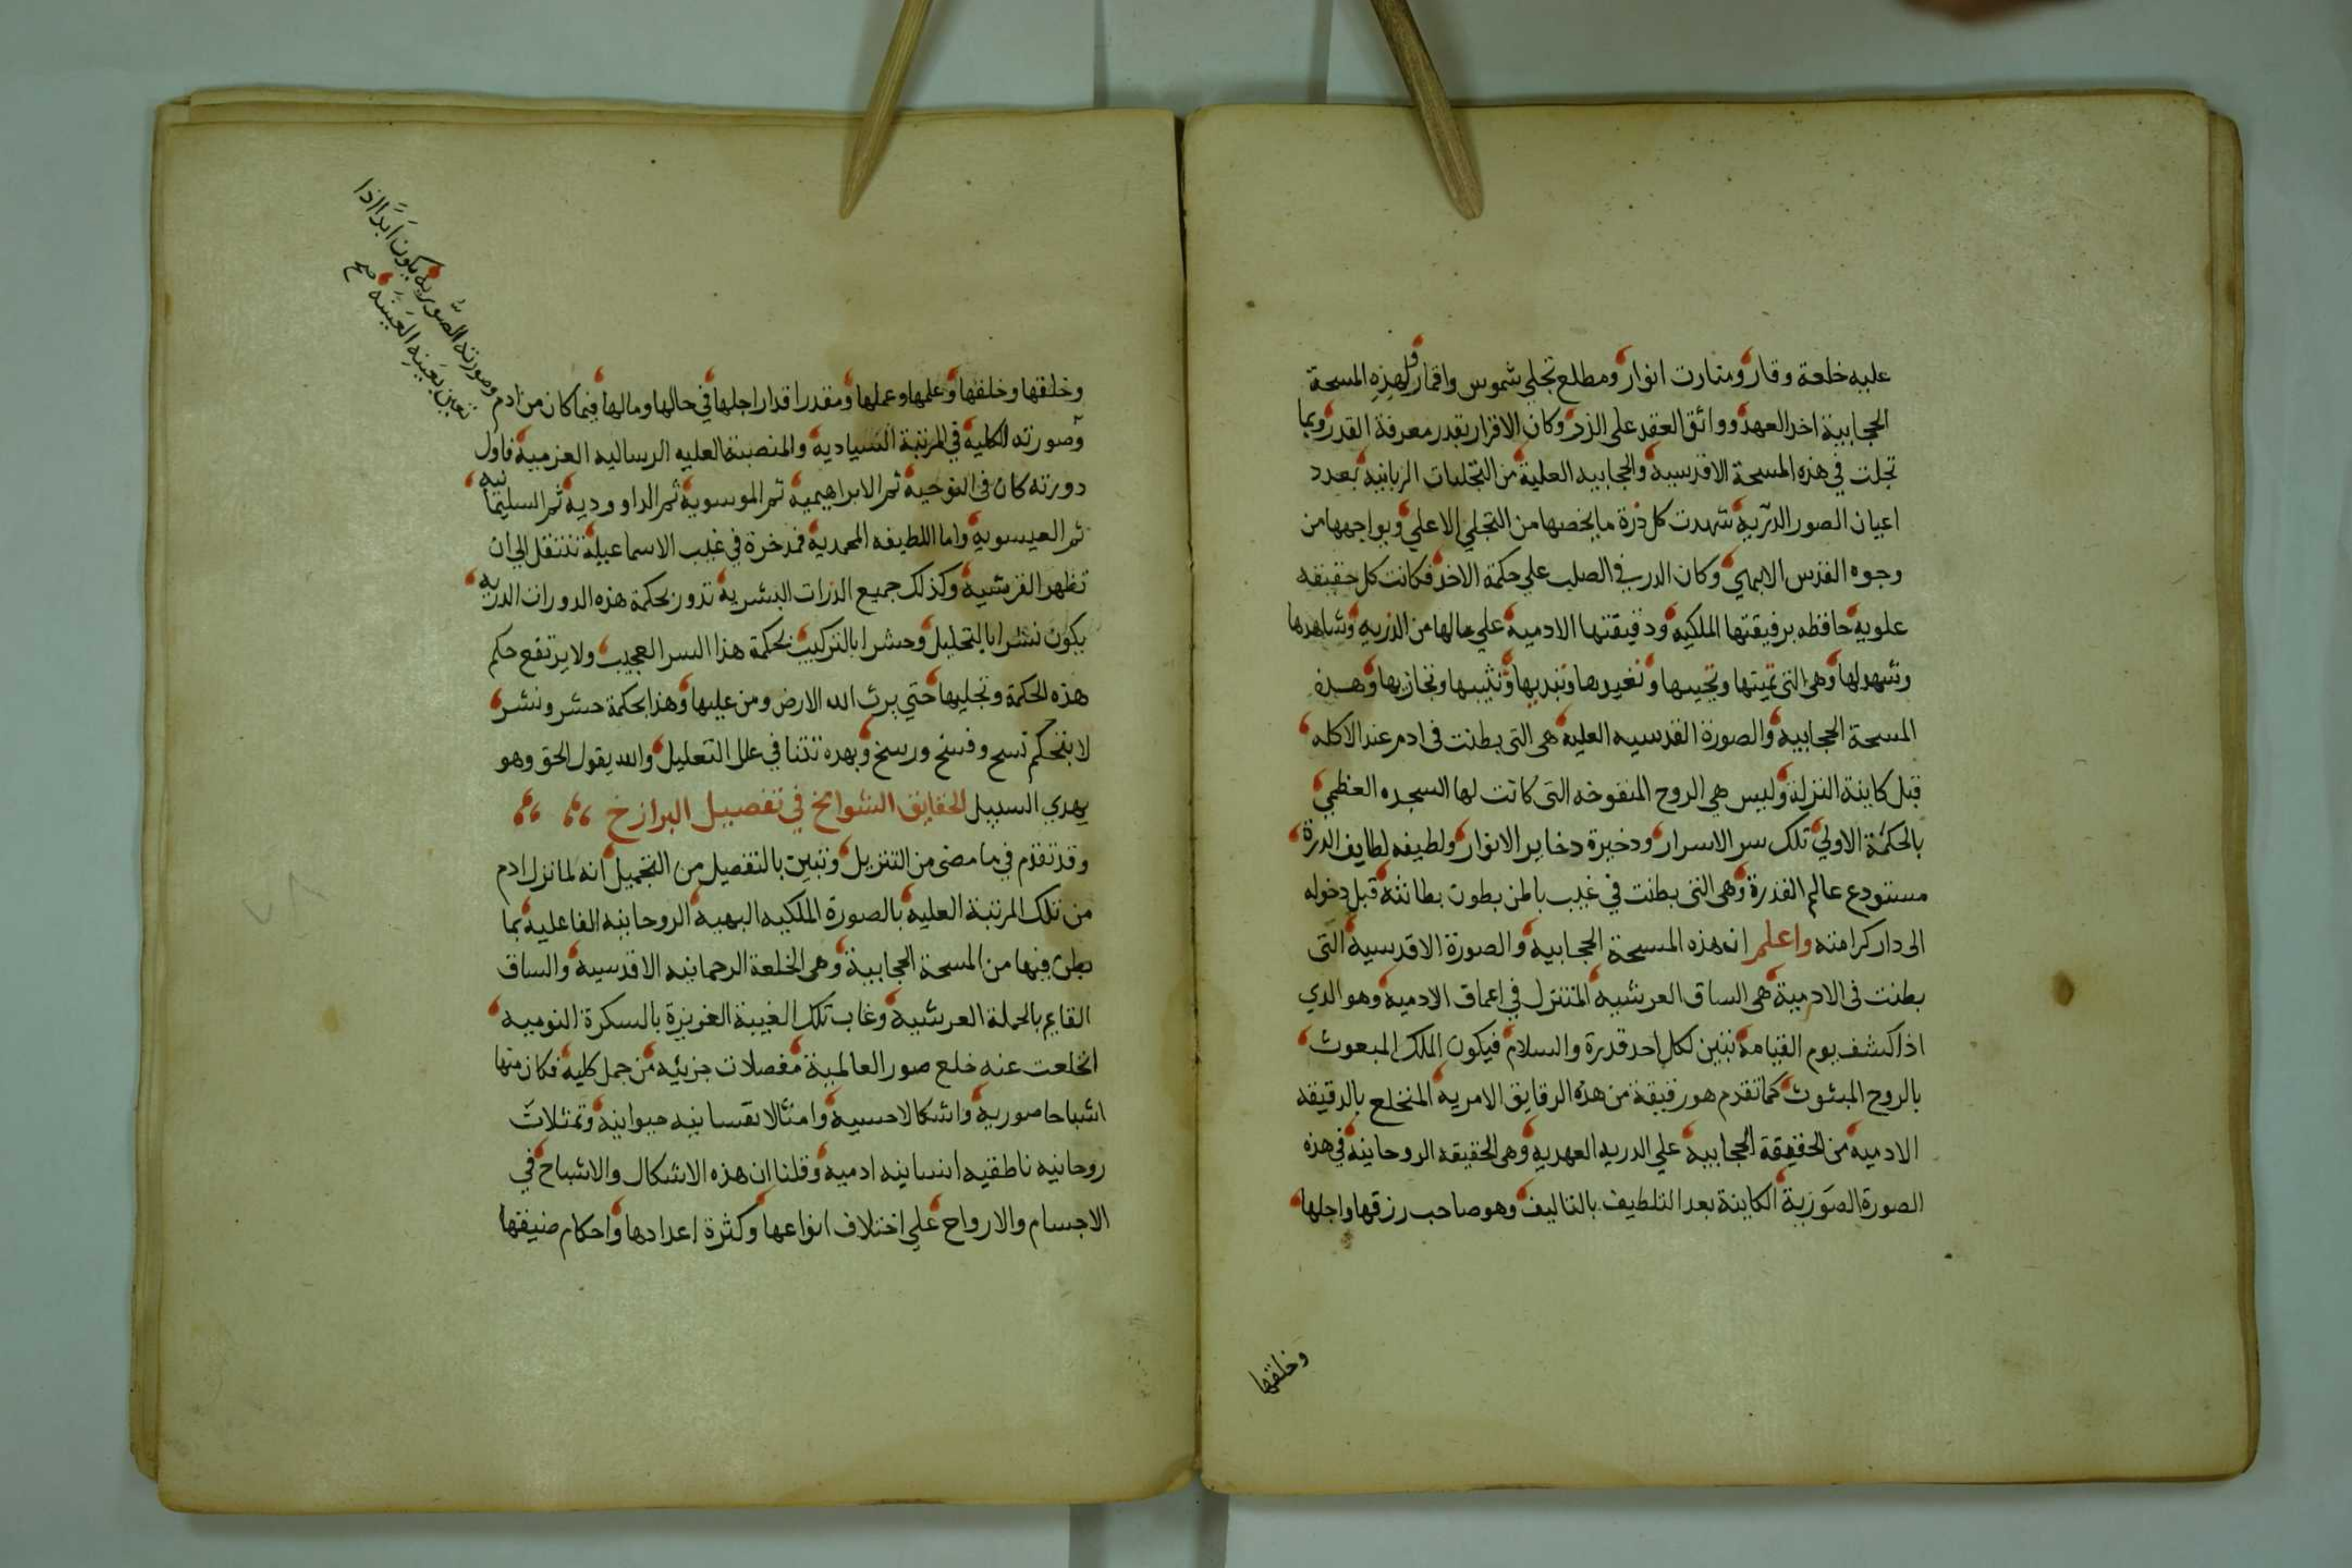 عليه خلعة وقار ومنارت انوار ومطلع تجلي شموس واقمار ولهذه المسحة
الحجابية اخذ العهد وواثق العقد على الذر وكان الاقرار بقدر معرفة القدر وبما
تجلت في هذه المسحة الاقدسيه والحجابيه العلية من التجليات الربانيه بعدد
اعيان الصور الذريه شهدت كل ذرة ما يخصها من التجلي الاعلي ويواجهها من
وجوه القدس الابهي وكان الدر في الصلب علي حكمة الاخذ فكانت كل حقيقه
علويه حافظه برقيقتها الملكيه ودقيقتها الادميه علي مالها من الذريه وشاهدها
وشهولها وهي التي تميتها وتحييها وتغيرها وتبديها وتثيبها وتجازيها وهذه
المسحة الحجابيه والصورة القدسيه العليه هي التي بطنت في ادم عند الاكله
قبل كاينة النزلة وليس هي الروح المنفوخه التي كانت لها السجده العظمي
بالحكمة الاولي تلك سر الاسرار ودخيرة دخاير الانوار ولطيفه لطايف الدرة
مستودع عالم القدرة وهي التي بطنت في غيب باطن بطون بطانته قبل دخوله
الى دار كرامته واعلم ان هذه المسحة الحجابيه والصورة الاقدسية التى
بطنت في الادمية هي الساق العرشيه المتنزل في اعماق الادميه وهو الدي
اذا كشف يوم القيامة تبين لكل احد قدرة والسلام فيكون الملك المبعوث
بالروح المبثوث كما تقدم هو رقيقة من هذه الرقايق الامريه المنخلع بالدقيقه
الادميه من الحقيقة الحجابية علي الدريه العهديه وهي الحقيقه الروحانية في هذه
الصورة الصورية الكاينة بعد التلطيف بالتاليف وهو صاحب رزقها واجلها
وخلقها
وخلقها وخلقها وعلمها وعملها ومقدر اقدار اجلها في حالها ومالها فيما كان من ادم
وصورته الصوريه يكون ابدا اذا
تعين بعينه العينيه صح
وصورته الكليه في المرتبة السيادية والمنصبة العليه الرساليه العزميه فاول
دورته كان في النوحية ثم الابراهيمية ثم الموسوية ثم الداوودية ثم السليمانيه
ثم العيسويه واما اللطيفه المحمديه فمدخرة في غيب الاسماعيلة تنتقل الي ان
تظهر القرشية وكذلك جميع الذرات البشرية تدور بحكمة هذه الدورات الدريه
يكون نشرا بالتحليل وحشرا بالتركيب بحكمة هذا السر العجيب ولا يرتفع حكم
هذه الحكمة وتجليها حتي يرث الله الارض ومن عليها وهذا بحكمة حشر ونشر
لا بتحكم نسخ وفسخ ورسخ وبهده تتنا في علل التعليل والله يقول الحق وهو
يهدي السبيل الحقايق الشوامخ في تفصيل البرازخ
وقد تقدم في ما مضى من التنزيل وتبين بالتفصيل من التجميل انه لما نزل ادم
من تلك المرتبة العليه بالصورة الملكيه البهيه الروحانيه الفاعليه بما
بطن فيها من المسحة الحجابية وهي الخلعة الرحمانيه الاقدسيه والساق
القايم بالحملة العرشيه وغاب تلك الغيبة الغزيزة بالسكرة النوميه
انخلعت عنه خلع صور العالمية مفصلات جزئيه من جمل كليه فكان منها
اشباحا صوريه واشكالا حسيه وامثالا نفسانيه حيوانيه وتمثلات
روحانيه ناطقيه انسانيه ادميه وقلنا ان هذه الاشكال والاشباح في
الاجسام والارواح علي اختلاف انواعها وكثرة اعدادها واحكام ضيقها